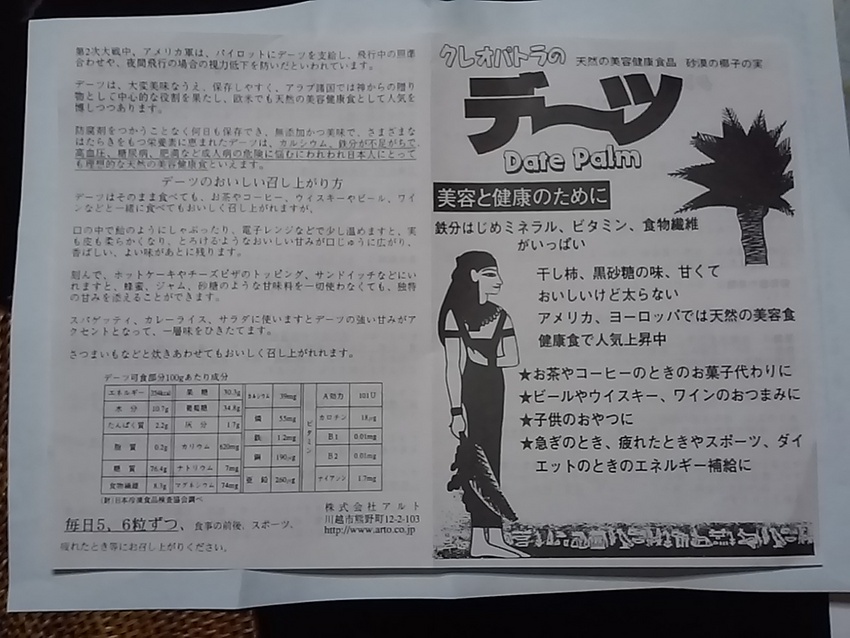 第2次大戦中、アメリカ軍は、パイロットにデーツを支給し、飛行中の照準
合わせや、夜間飛行の場合の視力低下を防いだといわれています。
デーツは、大変美味なうえ、保存しやすく、アラブ諸国では神からの贈り
物として中心的な役割を果たし、欧米でも天然の美容健康食として人気を
博しつつあります。
防腐剤をつかうことなく何日も保存でき、無添加かつ美味で、さまざまな
はたらきをもつ栄養素に恵まれたデーツは、カルシウム、鉄分が不足がちで、
高血圧、糖尿病、肥満など成人病の危険に悩むにわれわれ日本人にとって
も理想的な天然の美容健康食といえます。
デーツのおいしい召し上がり方
デーツはそのまま食べても、お茶やコーヒー、ウイスキーやビール、ワイ
ンなどと一緒に食べてもおいしく召し上がれますが、
口の中で飴のようにしゃぶったり、電子レンジなどで少し温めますと、実
も皮も柔らかくなり、とろけるようなおいしい甘みが口じゅうに広がり、
香ばしい、よい味があとに残ります。
刻んで、ホットケーキやチーズピザのトッピング、サンドイッチなどにい
れますと、蜂蜜、ジャム、砂糖のような甘味料を一切使わなくても、独特
の甘みを添えることができます。
スパゲッティ、カレーライス、サラダに使いますとデーツの強い甘みがア
クセントとなって、一層味をひきたてます。
さつまいもなどと炊きあわせてもおいしく召し上がれれます。
デーツ可食部分100gあたり成分
エネルギー 果糖 30.3g カルシウム 39mg A効力 101U
水分 10.7g 葡萄糖 34.8g 燐 55mg カロチン 18μg
たんぱく質 2.2g 灰分 1.7g 鉄 1.2mg ビタミン B1 0.01mg
脂質 0.2g カリウム 620mg 銅 190μg B2 0.01mg
糖質 76.4g ナトリウム 7mg 亜鉛 260μg ナイアシン 1.7mg
食物繊維 8.3g マグネシウム 74mg
(財)日本冷凍食品検査協会調べ
毎日5，6粒ずつ、食事の前後、スポーツ、
疲れたとき等にお召し上がりください。
株式会社アルト
川越市熊野町12-2-103
http://www.arto.co.jp
クレオパトラの
天然の美容健康食品 砂漠の椰子の実
デーツ
Date Palm
美容と健康のために
鉄分はじめミネラル、ビタミン、食物繊維
がいっぱい
干し柿、黒砂糖の味、甘くて
おいしいけど太らない
アメリカ、ヨーロッパでは天然の美容食
健康食で人気上昇中
★お茶やコーヒーのときのお菓子代わりに
★ビールやウイスキー、ワインのおつまみに
★子供のおやつに
★急ぎのとき、疲れたときやスポーツ、ダイ
エットのときのエネルギー補給に